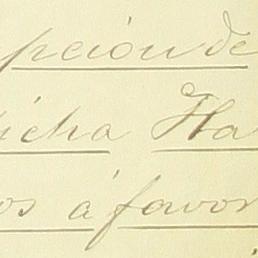 pción de
icha Ha
os á favor